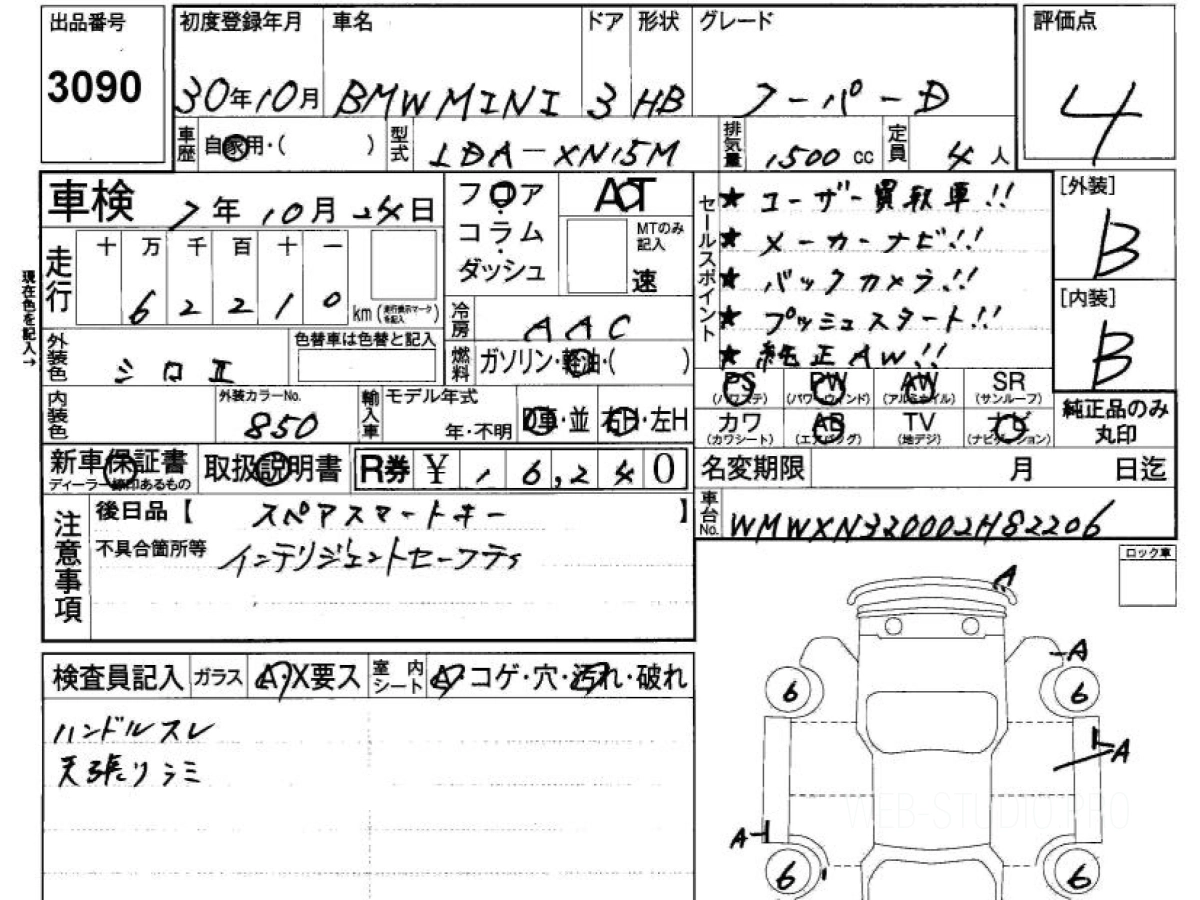 出品番号
3090
初度登録年月
30年10月
車名
BMW MINI
ドア
3
形状
HB
グレード
クーパーD
評価点
4
車歴
自家用・( )
型式
LDA-XN15M
排気量
1500 cc
定員
4人
車検
7年10月24日
走行
十 万 千 百 十 一
6 2 2 1 0
km (走行表示マークを記入)
現在色を記入→
外装色
シロⅡ
色替車は色替と記入
内装色
外装カラーNo.
850
フロア
コラム
ダッシュ
AT
MTのみ記入
速
冷房
AAC
燃料
ガソリン・軽油・( )
輸入車
モデル年式
年・不明
D車・並
右H・左H
セールスポイント
★ユーザー買取車!!
★メーカーナビ!!
★バックカメラ!!
★プッシュスタート!!
★純正AW!!
[外装]
B
[内装]
B
PS (パワステ)
PW (パワーウィンド)
AW (アルミホイル)
SR (サンルーフ)
カワ (カワシート)
AB (エアバッグ)
TV (地デジ)
ナビ (ナビゲーション)
純正品のみ丸印
新車保証書
ディーラー捺印あるもの
取扱説明書
R券 ¥ 16,240
名変期限 月 日迄
車台No.
WMWXN320002H82206
注意事項
後日品【 スペアスマートキー 】
不具合箇所等 インテリジェントセーフティ
ロック車
検査員記入
ガラス
A・X要ス
室内シート
A・コゲ・穴・汚れ・破れ
ハンドルスレ
天張りシミ
A
A
6
6
A
A
6
6
WEB-STUDIO.PRO